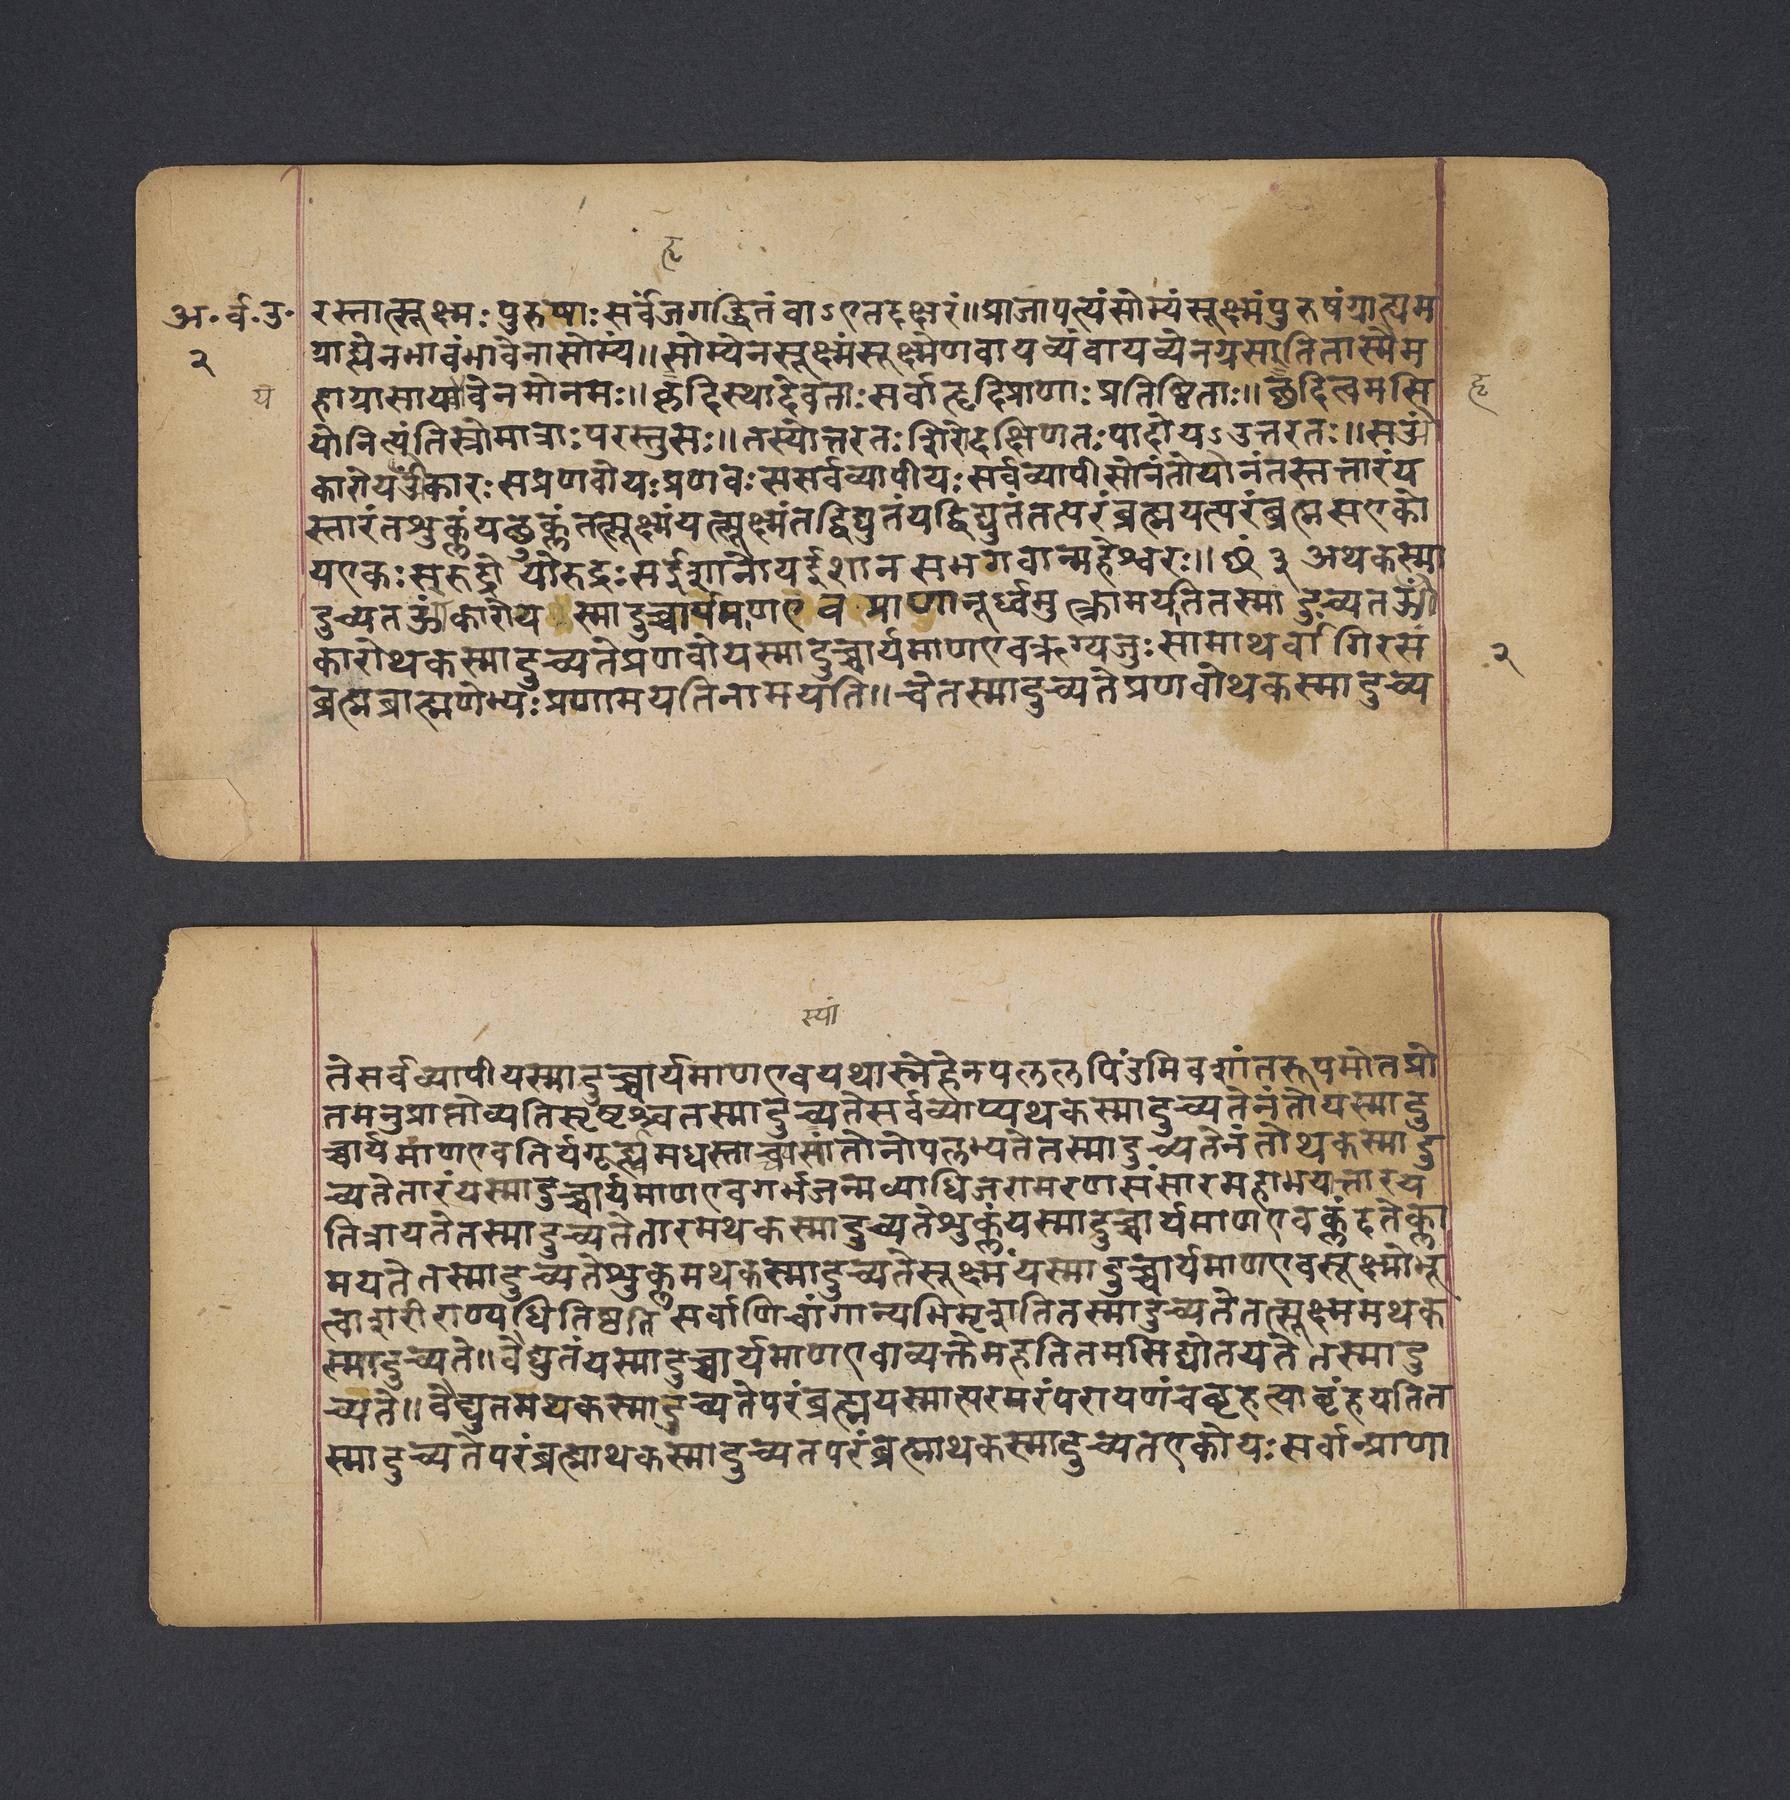 हृ
अ॰र्व॰उ॰ रस्तात्सूक्ष्मः पुरुषाः सर्वंजगद्धितं वाऽएतदक्षरं॥प्राजापत्यंसोम्यंसूक्ष्मंपुरुषंग्राह्यम
२ ग्राह्येनभावंभावेनासोम्यं॥सोम्येनसूक्ष्मंसूक्ष्मेणवायव्यंवायव्येनग्रसातितास्मैम
य हाग्रासायवैनमोनमः॥हृदिस्थादेवताः सर्वाहृदिप्राणाः प्रतिष्ठिताः॥हृदित्वमसि हृ
योनित्यंतिस्त्रोमात्राः परस्तुसः॥तस्योत्तरतः शिरोदक्षिणतः पादोयऽउत्तरतः॥सॐ
कारोयॐकारः सप्रणवोयः प्रणवः ससर्वव्यापीयः सर्वव्यापीसोनंतोयोनंतस्तत्तारंय
त्तारंतश्रुक्लंयछुक्लंतत्सूक्ष्मंयत्सूक्ष्मंतद्विद्युतंयद्विद्युतंतत्परंब्रह्मयत्परंब्रह्मसएको
यएकः सरुद्रो योरुद्रः सईशानोयईशान सभगवान्महेश्वरः॥ॐ ३ अथकस्मा
दुच्यतॐकारोय स्मादुच्चार्यमाणएव प्राणानूर्ध्वमुत्क्रामयतितस्मादुच्यतॐ
कारोथकस्मादुच्यतेप्रणवोयस्मादुच्चार्यमाणएवऋग्यजुः सामाथर्वांगिरसं २
ब्रह्मब्राह्मणेभ्यः प्रणामयतिनामयति॥चेतस्मादुच्यतेप्रणवोथकस्मादुच्य
स्यां
तेसर्वव्यापीयस्मादुच्चार्यमाणएवयथास्नेहेनपललपिंडमिवशांतरूपमोतप्रो
तमनुप्राप्तोव्यतिसृष्टश्चतस्मादुच्यतेसर्वव्याप्यथकस्मादुच्यतेनंतोयस्मादु
च्चार्यमाणएवतिर्यगूर्ध्वमधस्ताच्चासांतोनोपलभ्यतेतस्मादुच्यतेनंतोथकस्मादु
च्यतेतारंयस्मादुच्चार्यमाणएवगर्भजन्मव्याधिजरामरणसंसारमहाभयात्तारय
तित्रायतेतस्मादुच्यतेतारमथकस्मादुच्यतेश्रुक्लंयस्मादुच्चार्यमाणएवक्लंदतेक्ला
मयतेतस्मादुच्यतेश्रुक्लमथकस्मादुच्यतेसूक्ष्मंयस्मादुच्चार्यमाणएवसूक्ष्मोभू
त्वाशरीराण्यधितिष्ठतिसर्वाणिचांगान्यभिमृशतितस्मादुच्यतेतत्सूक्ष्ममथक
स्मादुच्यते॥वैद्युतंयस्मादुच्चार्यमाणएवाव्यक्तेमहतितमसिद्योतयतेतस्मादु
च्यते॥वैद्युतमथकस्मादुच्यतेपरंब्रह्मयस्मात्परमपरंपरायणंचबृहत्याबृंहयतित
स्मादुच्यतेपरंब्रह्माथकस्मादुच्यतपरंब्रह्माथकस्मादुच्यतएकोयः सर्वान्प्राणा